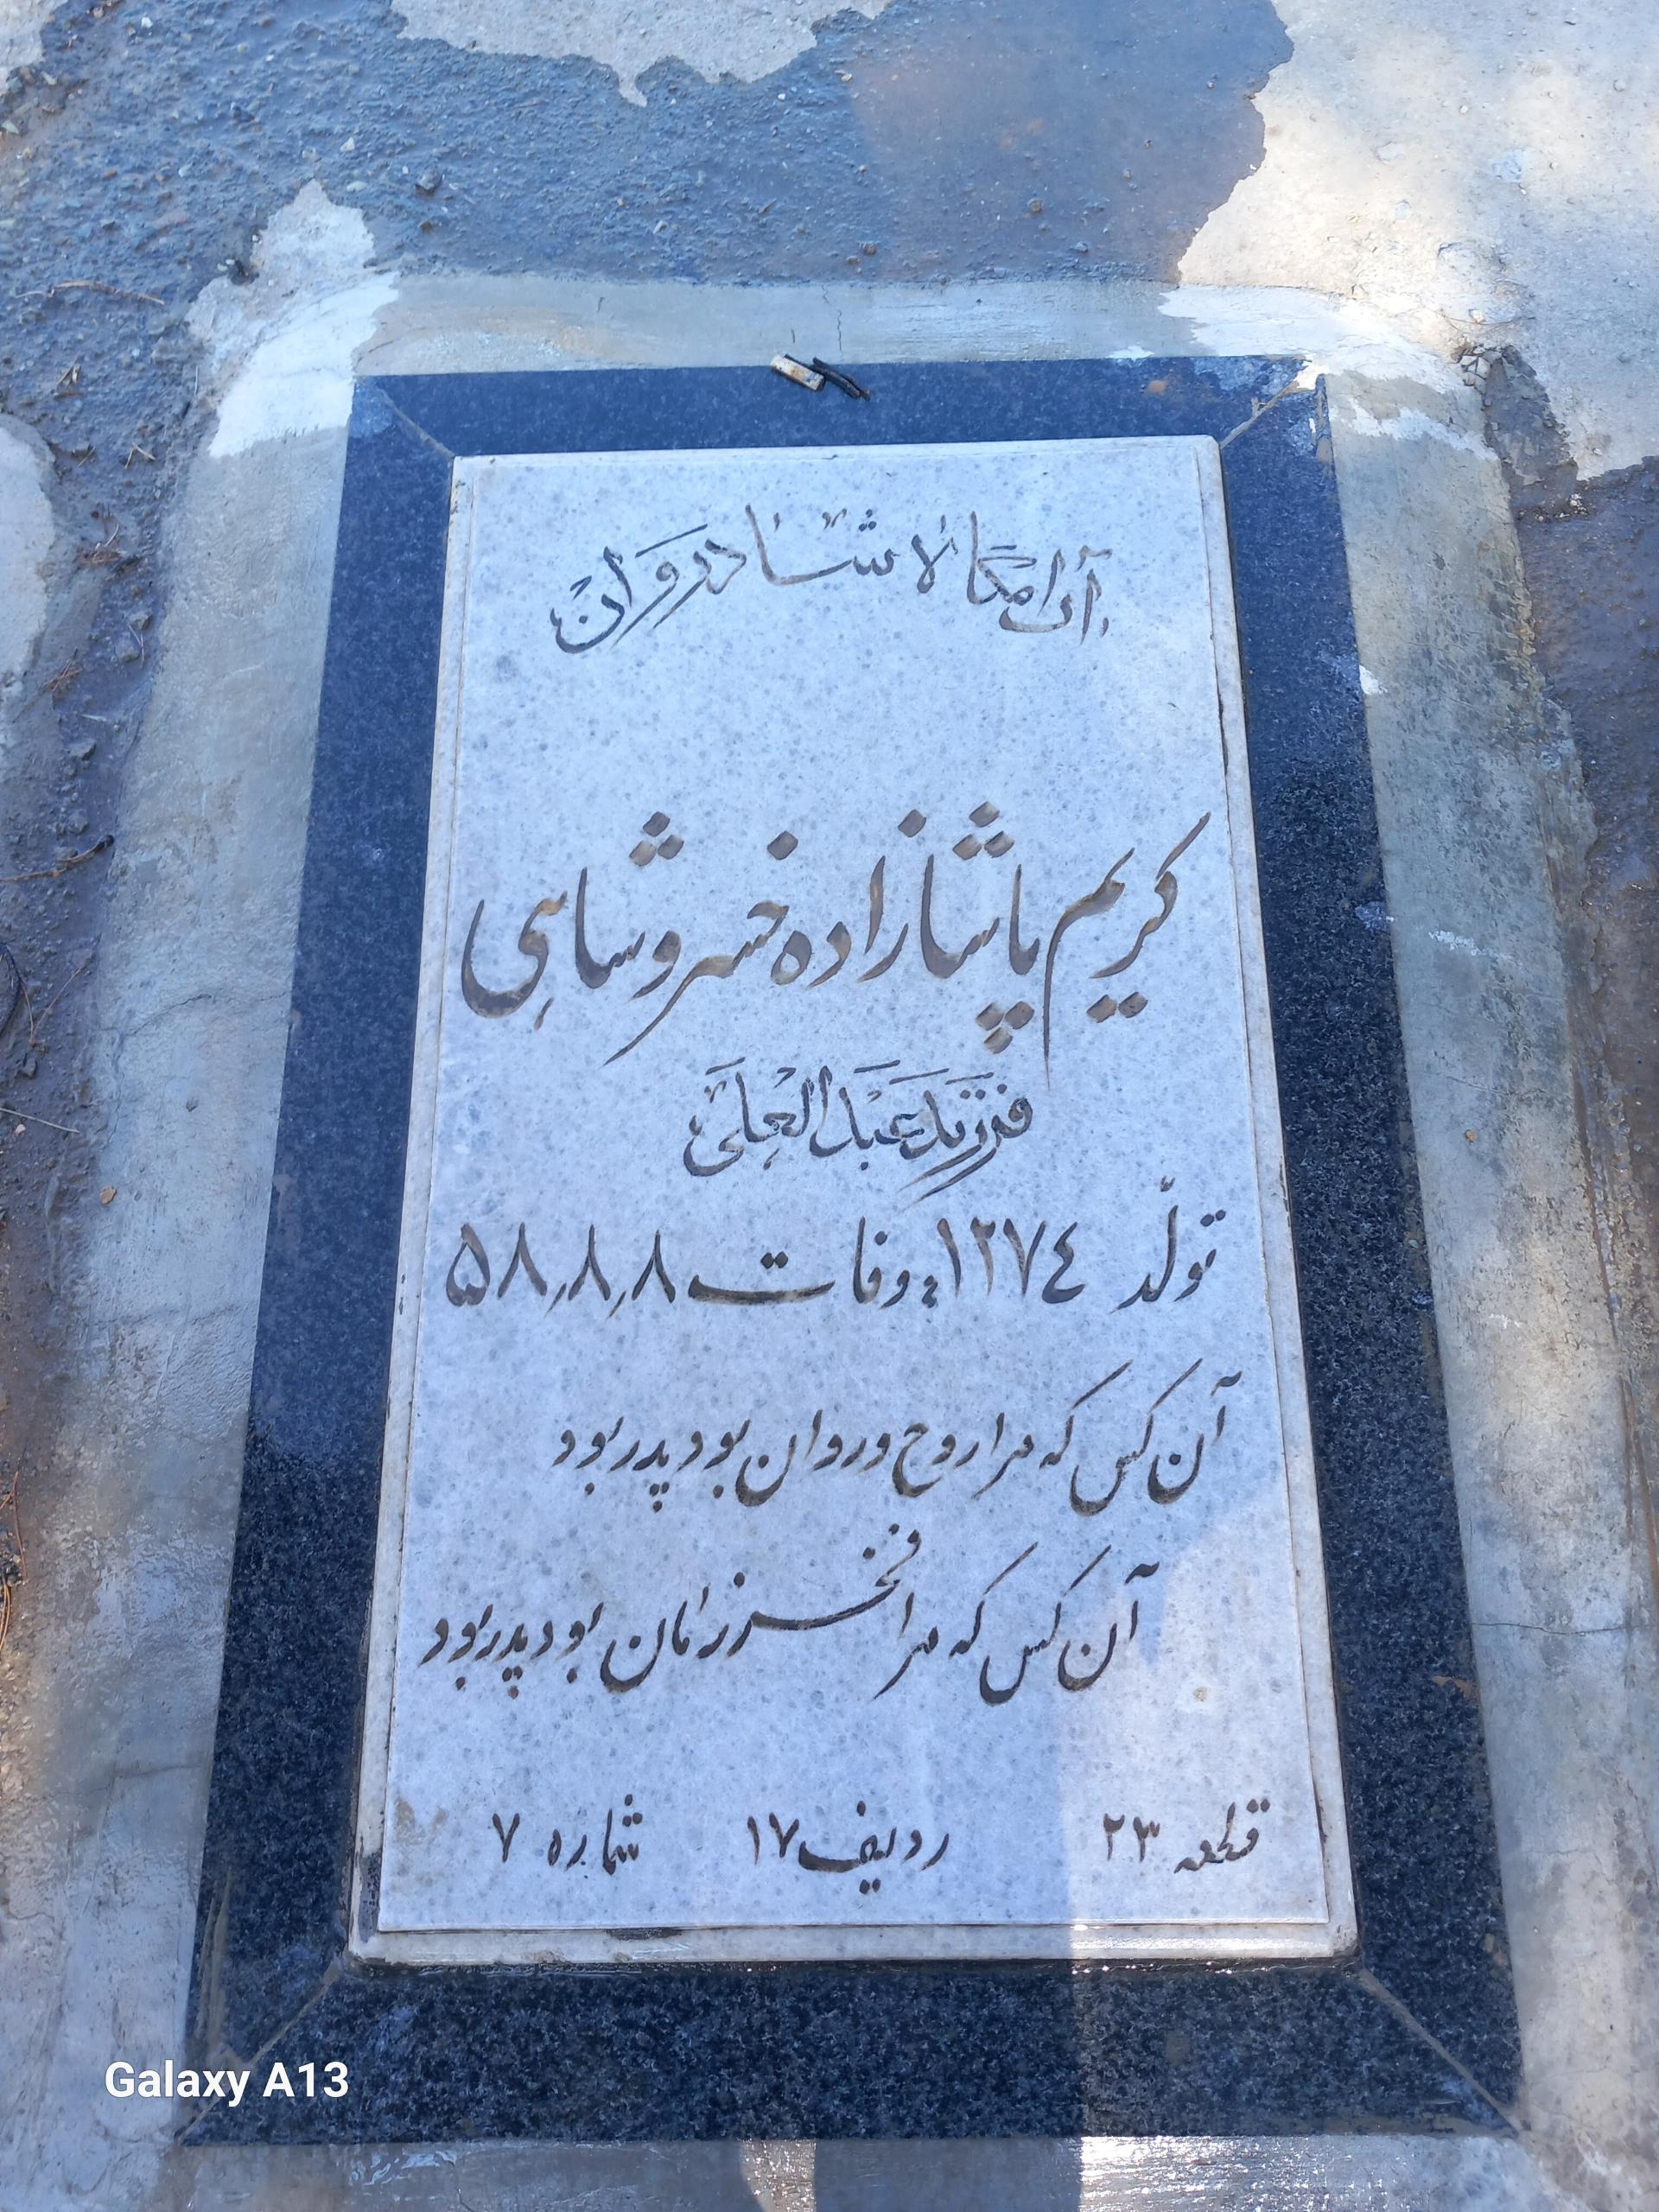 آرامگاه شادروان
کریم پاشازاده خسروشاهی
فرزند عبدالعلی
تولّد ۱۲۷٤ وفات ۵۸٫۸٫۸
آن کس که مرا روح و روان بود پدر بود
آن کس که مرا فخر زمان بود پدر بود
قطعه ۲۳ ردیف ۱۷ شماره ۷
Galaxy A13